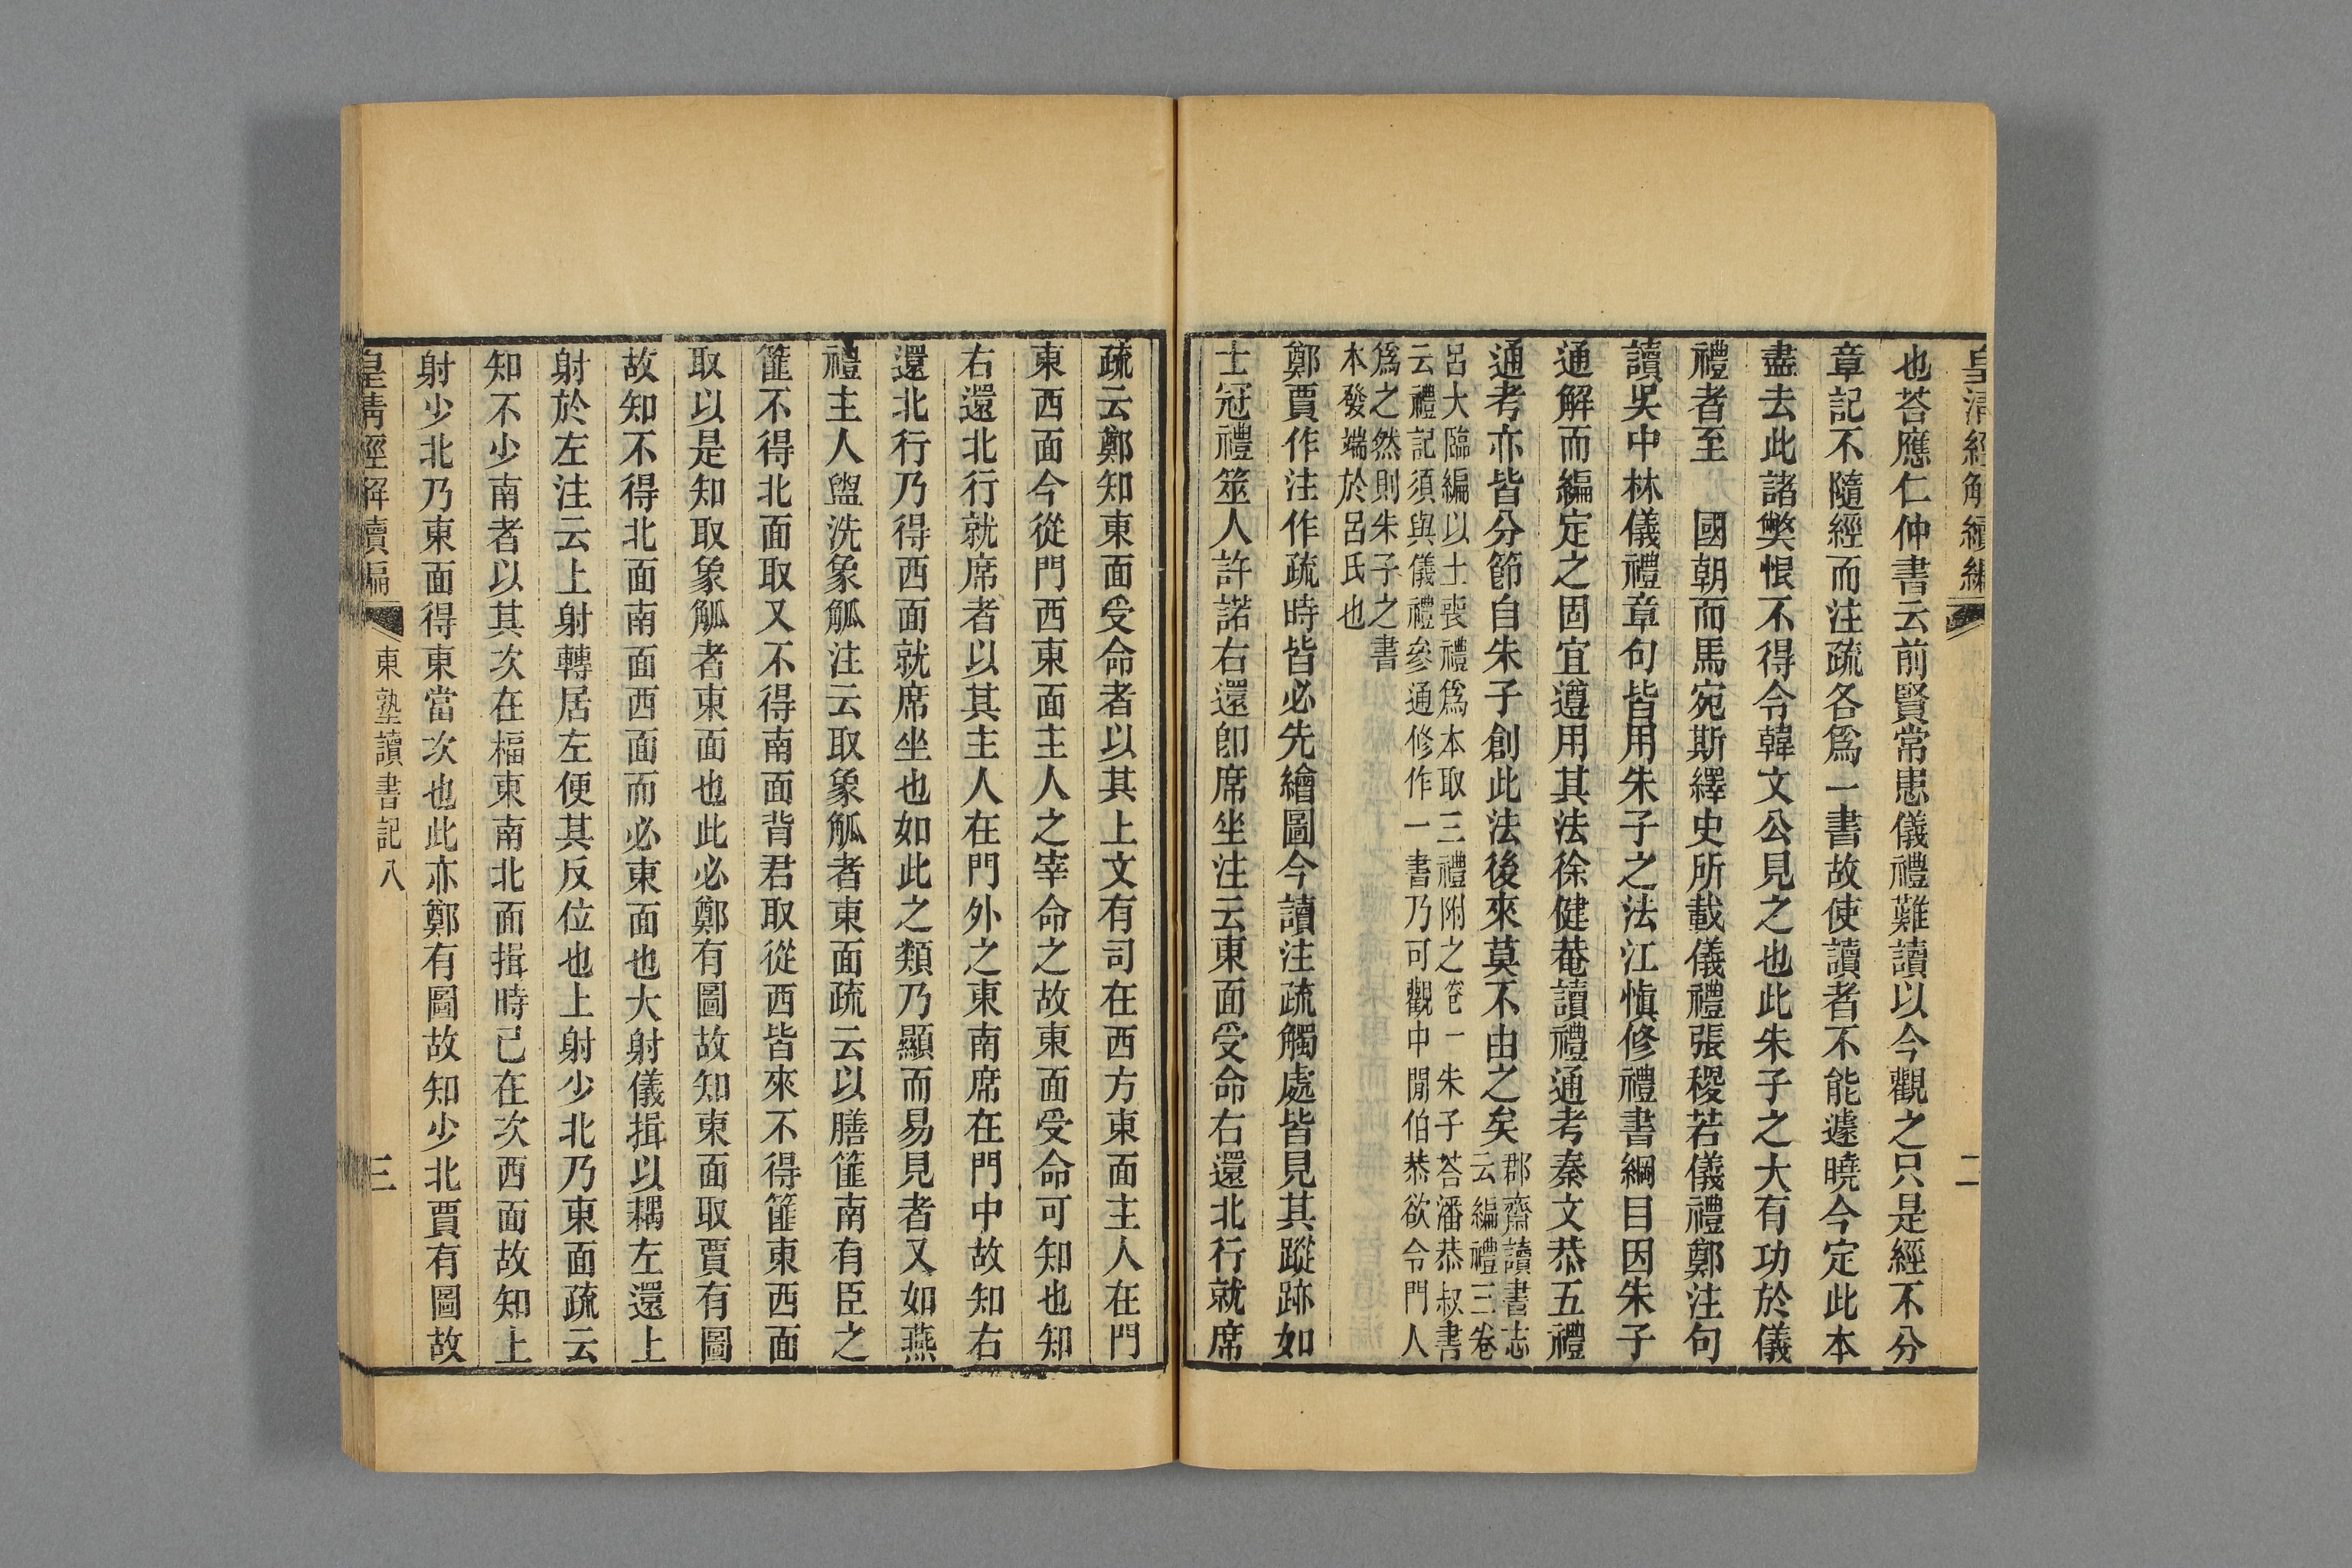 皇清經解續編 二
也荅應仁仲書云前賢常患儀禮難讀以今觀之只是經不分
章記不隨經而注疏各爲一書故使讀者不能遽曉今定此本
盡去此諸獘恨不得令韓文公見之也此朱子之大有功於儀
禮者至 國朝而馬宛斯繹史所載儀禮張稷若儀禮鄭注句
讀吳中林儀禮章句皆用朱子之法江愼修禮書綱目因朱子
通解而編定之固宜遵用其法徐健菴讀禮通考秦文恭五禮
通考亦皆分節自朱子創此法後來莫不由之矣
郡齋讀書志
云編禮三卷
呂大臨編以士喪禮爲本取三禮附之卷一朱子荅潘恭叔書
云禮記須與儀禮參通修作一書乃可觀中閒伯恭欲令門人
爲之然則朱子之書
本發端於呂氏也
鄭賈作注作疏時皆必先繪圖今讀注疏觸處皆見其蹤跡如
士冠禮筮人許諾右還卽席坐注云東面受命右還北行就席
疏云鄭知東面受命者以其上文有司在西方東面主人在門
東西面今從門西東面主人之宰命之故東面受命可知也知
右還北行就席者以其主人在門外之東南席在門中故知右
還北行乃得西面就席坐也如此之類乃顯而易見者又如燕
禮主人盥洗象觚注云取象觚者東面疏云以膳篚南有臣之
篚不得北面取又不得南面背君取從西皆來不得篚東西面
取以是知取象觚者東面也此必鄭有圖故知東面取賈有圖
故知不得北面南面西面而必東面也大射儀揖以耦左還上
射於左注云上射轉居左便其反位也上射少北乃東面疏云
知不少南者以其次在楅東南北面揖時已在次西面故知上
射少北乃東面得東當次也此亦鄭有圖故知少北賈有圖故
皇清經解續編 東塾讀書記八 三